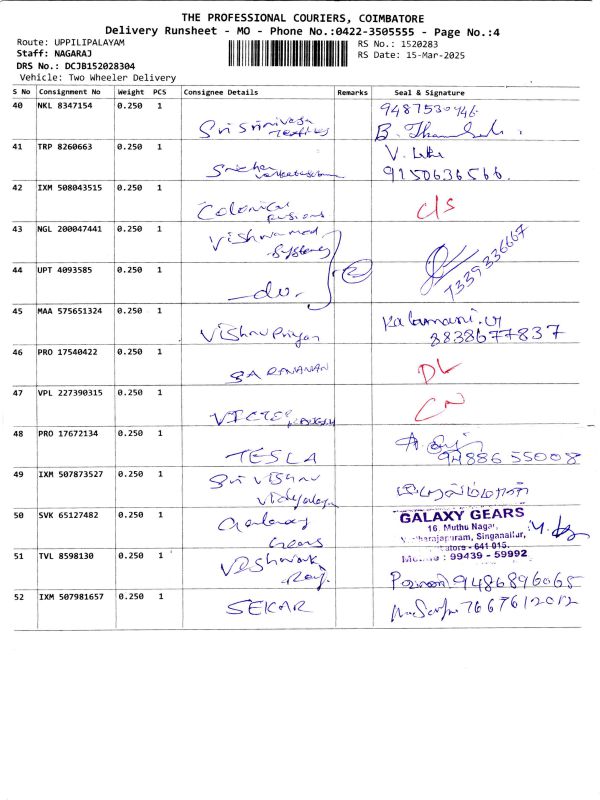 THE PROFESSIONAL COURIERS, COIMBATORE
Delivery Runsheet - MO - Phone No.:0422-3505555 - Page No.:4
Route: UPPILIPALAYAM
RS No.: 1520283
Staff: NAGARAJ
RS Date: 15-Mar-2025
DRS No.: DCJB152028304
Vehicle: Two Wheeler Delivery
S No Consignment No Weight PCS Consignee Details Remarks Seal & Signature
40 NKL 8347154 0.250 1
Sri Srinivasa
Textiles
9487530946
B.
41 TRP 8260663 0.250 1
V.
9150636566.
42 IXM 508043515 0.250 1
Colonial
Fusions
C/S
43 NGL 200047441 0.250 1
Vishwamed
Systems
44 UPT 4093585 0.250 1
-do-
2
7339336667
45 MAA 575651324 0.250 1
Vishnu Priyan
Kalamani. M
8838677837
46 PRO 17540422 0.250 1
SARAVANAN
DL
47 VPL 227390315 0.250 1
VICTER
CN
48 PRO 17672134 0.250 1
TESLA
94886 55008
49 IXM 507873527 0.250 1
Sri Vishnu
Vidyalaya
50 SVK 65127482 0.250 1
Galaxy
Gears
GALAXY GEARS
16, Muthu Nagar,
Singanallur,
641 015.
99439 - 59992
51 TVL 8598130 0.250 1
9486896065
52 IXM 507981657 0.250 1
SEKAR
7667612012